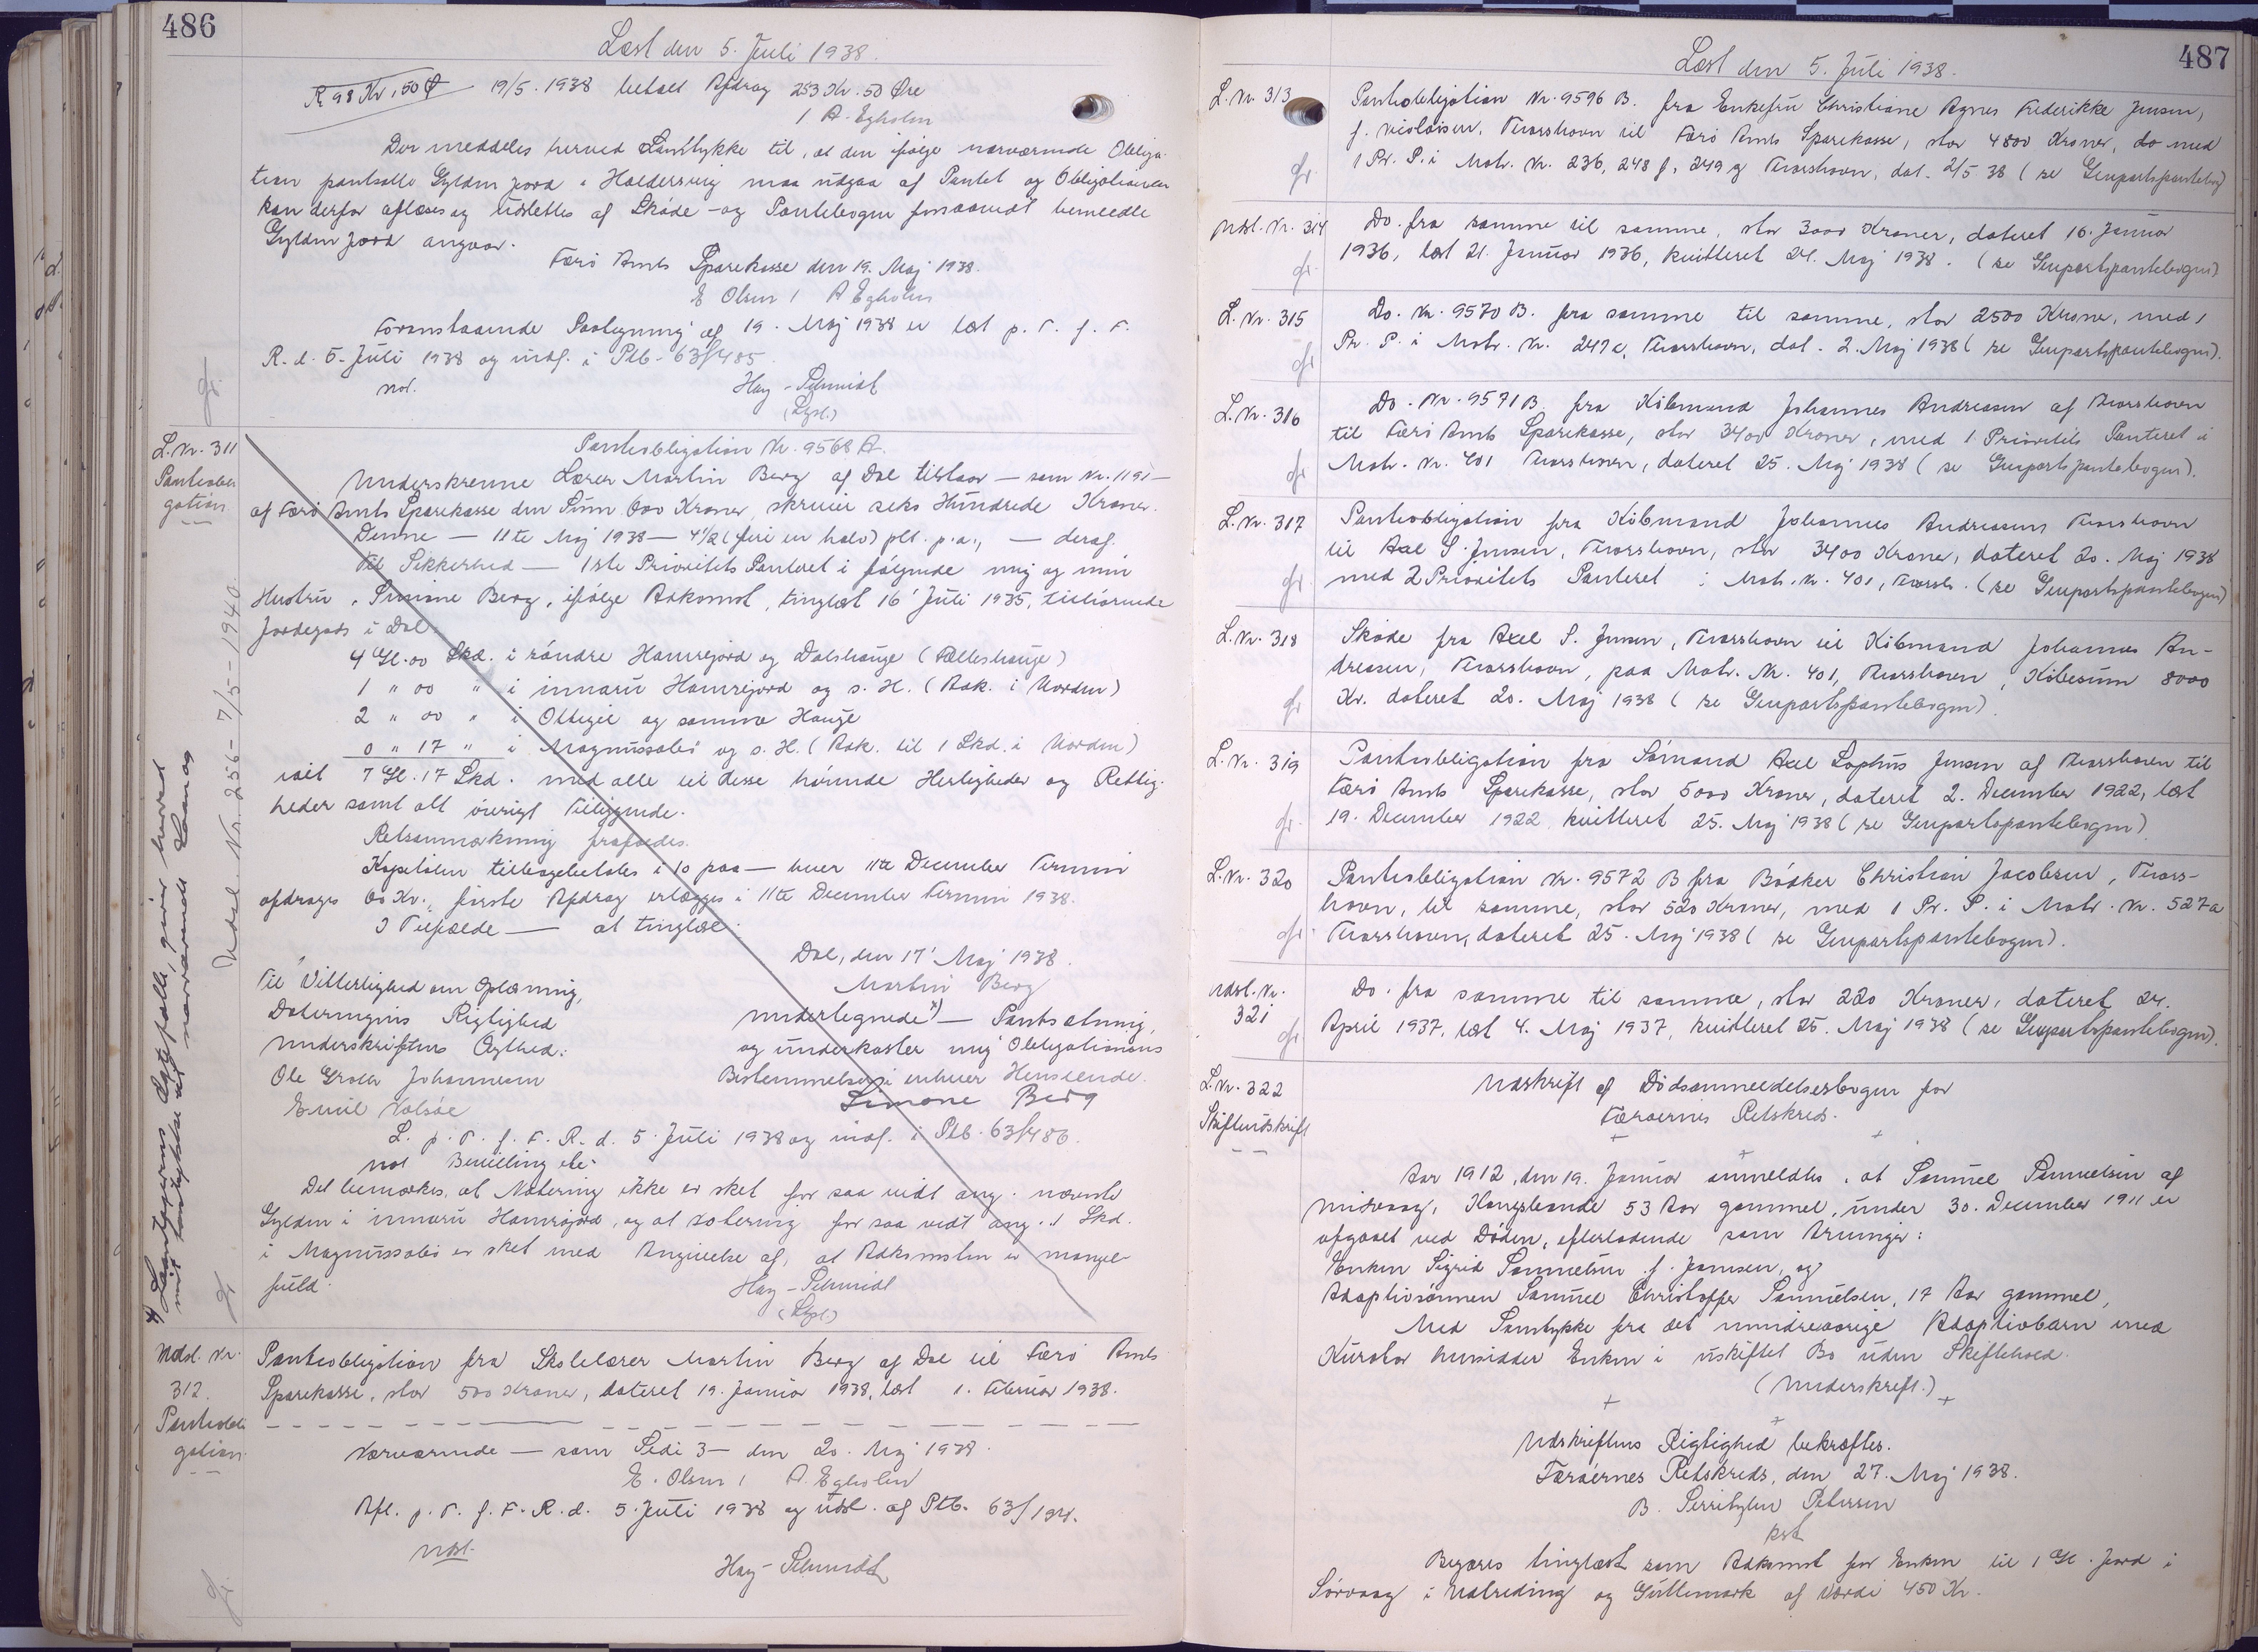 486
Læst den 5. Juli 1938.
R. 98 Kr. 50 Ø 19/5. 1938 betalt Afdrag 253 Kr. 50 Øre
/ A. Egholm
Der meddeles herved Samtykke til, at den ifølge nærværende Obliga-
tion pantsatte Gylden Jord i Haldersvig maa udgaa af Pantet og Obligationen
kan derfor aflæses og udslettes af Skøde- og Pantebogen forsaavidt bemeldte
Gylden Jord angaar.
Færø Amts Sparekasse den 19. Maj 1938.
E Olsen / A Egholm
Foranstaaende Paategning af 19. Maj 1938 er læst p. T. f. F.
R. d. 5. Juli 1938 og indf. i Ptb. 63/485.
not. Hay-Schmidt
(Lgd.)
L. Nr. 311
Pantobli
gation
Pantobligation Nr. 9568 A.
Underskrevne Lærer Martin Berg af Dal tilstaar — som Nr. 1191 —
af Færø Amts Sparekasse den Sum 600 Kroner, skriver seks Hundrede Kroner.
Denne — 11te Maj 1938 — 4½ (fire en halv) pCt. p.a., — deraf.
Til Sikkerhed — 1ste Prioritets Panteret i følgende mig og min
Hustru, Simone Berg, ifølge Adkomst, tinglæst 16' Juli 1935, tilhørende
Jordegods i Dal:
4 Gl. 00 Skd. i röndre Hamrejord og Dalshauge (Fælleshauge)
1 " 00 " i innaru Hamrejord og s. H. (Adk. i Norden)
2 " 00 " i Oltegil og samme Hauge
0 " 17 " i Magnussales og s. H. (Adk. til 1 Skd. i Norden)
ialt 7 Gl. 17 Skd. med alle til disse hørende Herligheder og Rettig-
heder samt alt øvrigt Tilliggende.
Retsanmærkning frafaldes.
Kapitalen tilbagebetales i 10 paa — hver 11te December Termin
afdrages 60 Kr., første Afdrag erlægges i 11te December Termin 1938.
I Tilfælde — at tinglæse.
Dal, den 17' Maj 1938.
Til Vitterlighed om Oplæsning, Martin Berg
Dateringens Rigtighed undertegnede x) — Pantsætning,
Underskriftens Ægthed: og underkaster mig Obligationens
Ole Johannesen Bestemmelser i enhver Henseende.
Emil Simone Berg
L. p. T. f. F. R. d. 5. Juli 1938 og indf. i Ptb. 63/486.
not Bevilling
Det bemærkes, at Notering ikke er sket for saa vidt ang. nævnte
Gylden i innaru Hamrejord, og at Notering for saa vidt ang. 1 Skd.
i Magnussales er sket med Angivelse af, at Adkomsten er mangel-
fuld. Hay-Schmidt
(Lgd.)
x) Laantagerens Ægtefælle, giver herved
mit Samtykke til nærværende Laan og
Udsl. Nr. 256 - 7/5 - 1940
Udsl. Nr.
312.
Pantobli
gation
Pantobligation fra Skolelærer Martin Berg af Dal til Færø Amts
Sparekasse, stor 500 Kroner, dateret 19. Januar 1938, læst 1. Februar 1938.
Nærværende — som Side 3 — den 20. Maj 1938.
E. Olsen / A. Egholm
Afl. p. T. f. F. R. d. 5 Juli 1938 og udsl. af Ptb. 63/194.
Udsl.
Hay-Schmidt
487
Læst den 5. Juli 1938.
L. Nr. 313 Pantobligation Nr. 9596 B. fra Enkefru Christiane Agnes Frederikke Jensen,
f. Nicolaisen, Thorshavn til Færø Amts Sparekasse, stor 4800 Kroner, do med
1 Pr. P. i Matr. Nr. 236, 248 f, 249 g Thorshavn, dat. 2/5 38 (se Genpartspantebog)
Udsl. Nr. 314 Do. fra samme til samme, stor 3000 Kroner, dateret 16. Januar
1936, læst 21. Januar 1936, kvitteret 24. Maj 1938. (se Genpartspantebogen)
L. Nr. 315 Do. Nr. 9570 B. fra samme til samme, stor 2500 Kroner, med 1
Pr. P. i Matr. Nr. 249 c, Thorshavn, dat. 2. Maj 1938 (se Genpartspantebogen).
L. Nr. 316 Do. Nr. 9571 B. fra Købmand Johannes Andreasen af Thorshavn
til Færø Amts Sparekasse, stor 3400 Kroner, med 1. Prioritets Panteret i
Matr. Nr. 401 Thorshavn, dateret 25. Maj 1938 (se Genpartspantebogen).
L. Nr. 317 Pantobligation fra Købmand Johannes Andreasens Thorshavn
til Axel S. Jensen, Thorshavn, stor 3400 Kroner, dateret 20. Maj 1938
med 2 Prioritets Panteret i Matr. Nr. 401, Thorsh. (se Genpartspantebogen)
L. Nr. 318 Skøde fra Axel S. Jensen, Thorshavn til Købmand Johannes An-
dreasen, Thorshavn, paa Matr. Nr. 401, Thorshavn, Købesum 8000
Kr. dateret 20. Maj 1938 (se Genpartspantebogen).
L. Nr. 319 Pantobligation fra Sømand Axel Sophus Jensen af Thorshavn til
Færø Amts Sparekasse, stor 5000 Kroner, dateret 2. December 1922, læst
19. December 1922, kvitteret 25. Maj 1938 (se Genpartspantebogen)
L. Nr. 320 Pantobligation Nr. 9572 B fra Bødker Christian Jacobsen, Thors-
havn, til samme, stor 520 Kroner, med 1 Pr. P. i Matr. Nr. 527a
Thorshavn, dateret 25. Maj 1938 (se Genpartspantebogen).
Udsl. Nr.
321
Do. fra samme til samme, stor 220 Kroner, dateret 24.
April 1937, læst 4. Maj 1937, kvitteret 25. Maj 1938 (se Genpartspantebogen).
L. Nr. 322
Skifteudskrift
Udskrift af Dødsanmeldelsesbogen for
Færøernes Retskreds.
Aar 1912, den 19. Januar anmeldtes, at Samuel Samuelsen af
Midvaag, Kongsbonde 53 Aar gammel, under 30. December 1911 er
afgaaet ved Døden, efterladende som Arvinger:
Enken Sigrid Samuelsen f. Joensen, og
Adoptivsønnen Samuel Christoffer Samuelsen, 17 Aar gammel,
Med Samtykke fra det mindreaarige Adoptivbarn med
Kurator hensidder Enken i uskiftet Bo uden Skiftehold.
(Underskrift.)
Udskriftens Rigtighed bekræftes.
Færøernes Retskreds, den 27. Maj 1938.
B. Petersen
kst
Begæres tinglæst som Adkomst for Enken til 1 Gl. Jord i
Sørvaag i og Gullemark af Værdi 450 Kr.